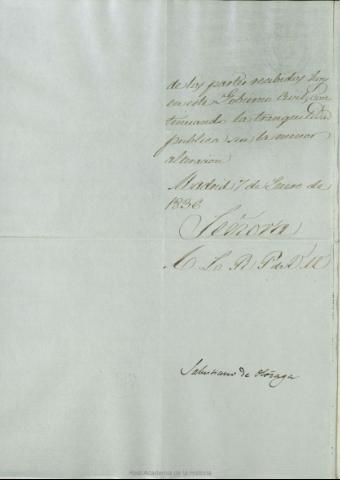 de los partes recibidos hoy
en este Gobierno Civil, con
tinuando la tranquilidad
publica sin la menor
alteracion
Madrid 7 de Enero de
1836
Señora
A L R P de V M
Salustiano de Olózaga
Real Academia de la Historia